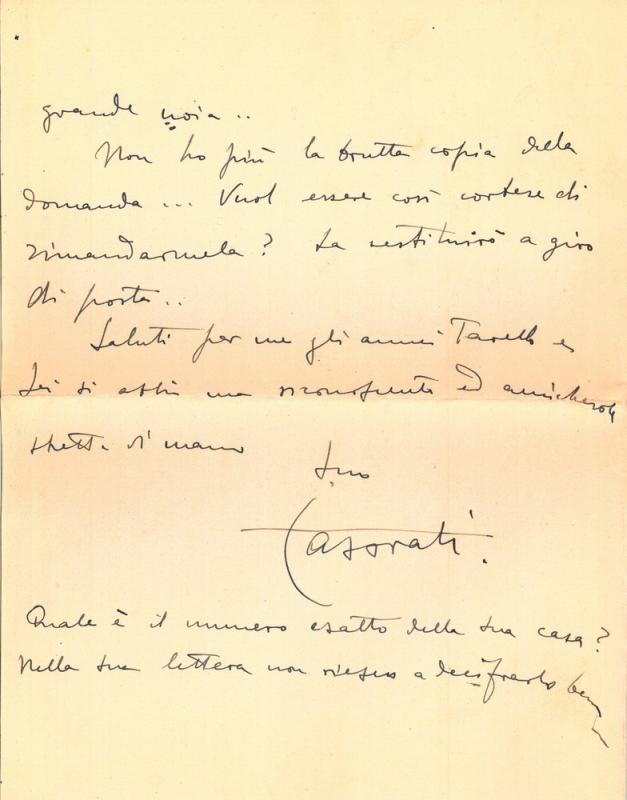 grande noia..
Non ho più la brutta copia della
domanda... Vuol essere così cortese di
rimandarmela? La restituirò a giro
di posta..
Saluti per me gli amici e
Lei si abbia una riconoscente ed amichevole
stretta di mano
Suo
Casorati.
Quale è il numero esatto della sua casa?
Nella sua lettera non riesco a decifrarlo bene